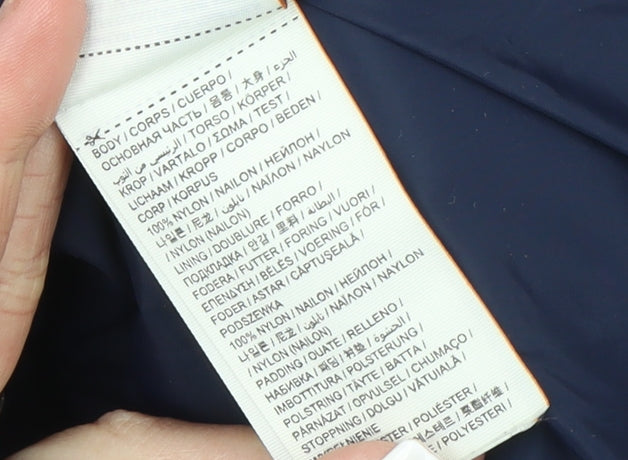 BODY / CORPS / CUERPO /
ОСНОВНАЯ ЧАСТЬ / 몸통 / 大身 / الجزء
الرئيسي من الثوب / TORSO / KÖRPER /
KROP / VARTALO / ΣΩΜΑ / TEST /
LICHAAM / KROPP / CORPO / BEDEN /
CORP / KORPUS
100% NYLON / NAILON / НЕЙЛОН /
나일론 / 尼龙 / نايلون / ΝΑΪΛΟΝ / NAYLON
/ NYLON (NAILON)
LINING / DOUBLURE / FORRO /
ПОДКЛАДКА / 안감 / 里料 / البطانه /
FODERA / FUTTER / FORING / VUORI /
ΕΠΕΝΔΥΣΗ / BÉLÉS / VOERING / FÓR /
FODER / ASTAR / CĂPTUȘEALĂ /
PODSZEWKA
100% NYLON / NAILON / НЕЙЛОН /
나일론 / 尼龙 / نايلون / ΝΑΪΛΟΝ / NAYLON
/ NYLON (NAILON)
PADDING / OUATE / RELLENO /
НАБИВКА / 패딩 / 衬垫 / الحشوة /
IMBOTTITURA / POLSTERUNG /
POLSTRING / TÄYTE / ΒΑΤΤΑ /
PÁRNÁZAT / OPVULSEL / CHUMAÇO /
STOPPNING / DOLGU / VĂTUIALĂ /
POLIESTER /
聚酯纤维 /
POLYESTERI /